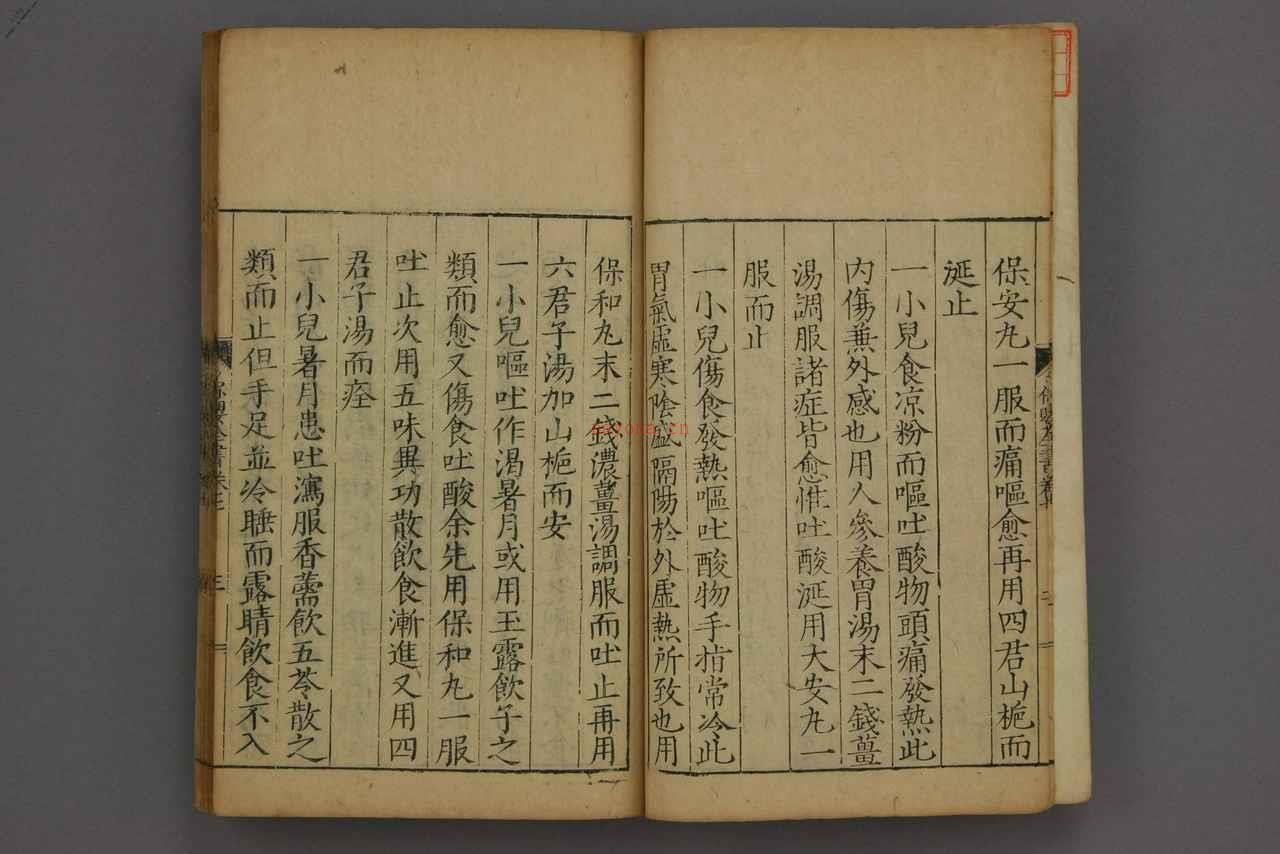 保安丸一服而痛嘔愈再用四君山梔而
涎止
一小兒食凉粉而嘔吐酸物頭痛發熱此
内傷兼外感也用人參養胃湯末二錢薑
湯調服諸症皆愈惟吐酸涎用大安丸一
服而止
一小兒傷食發熱嘔吐酸物手指常冷此
胃氣虛寒陰盛隔陽於外虛熱所致也用
保和丸末二錢濃薑湯調服而吐止再用
六君子湯加山梔而安
一小兒嘔吐作渴暑月或用玉露飲子之
類而愈又傷食吐酸余先用保和丸一服
吐止次用五味異功散飲食漸進又用四
君子湯而痊
一小兒暑月患吐瀉服香薷飲五苓散之
類而止但手足並冷睡而露睛飲食不入
保嬰全書